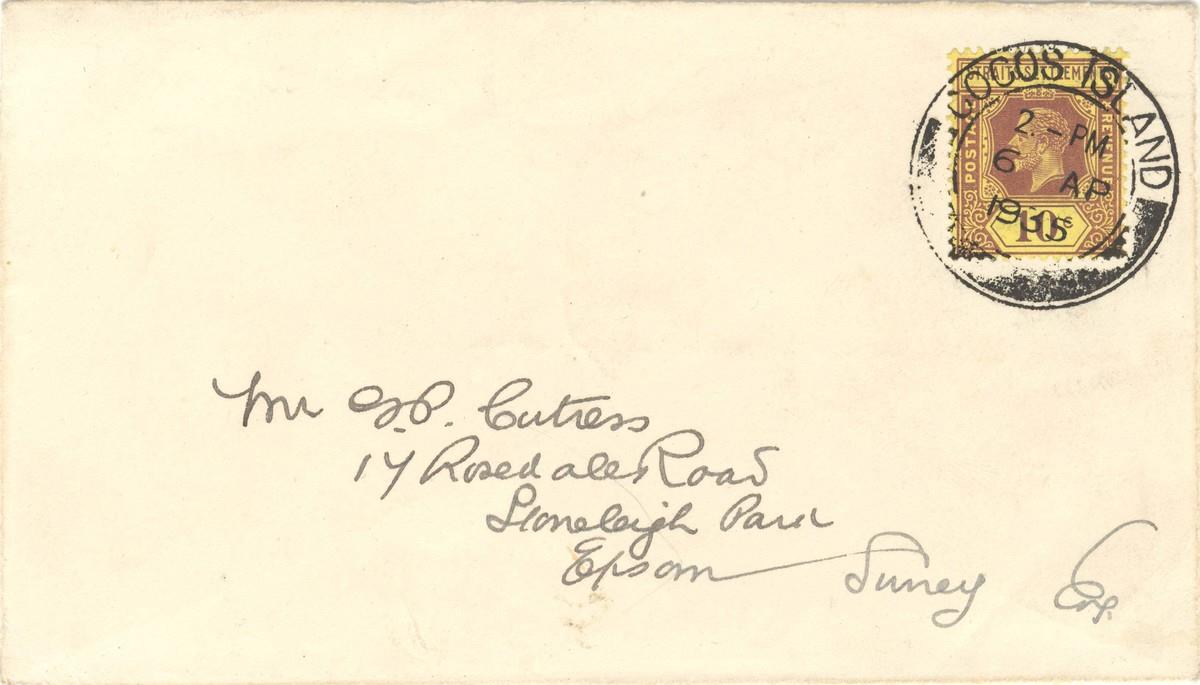 COCOS ISLAND
STRAITS SETTLEMENTS
POSTAGE REVENUE
2.-PM
6 AP
1935
10c
Mr G.P. Cutress
17 Rosedale Road
Stoneleigh Park
Epsom Surrey